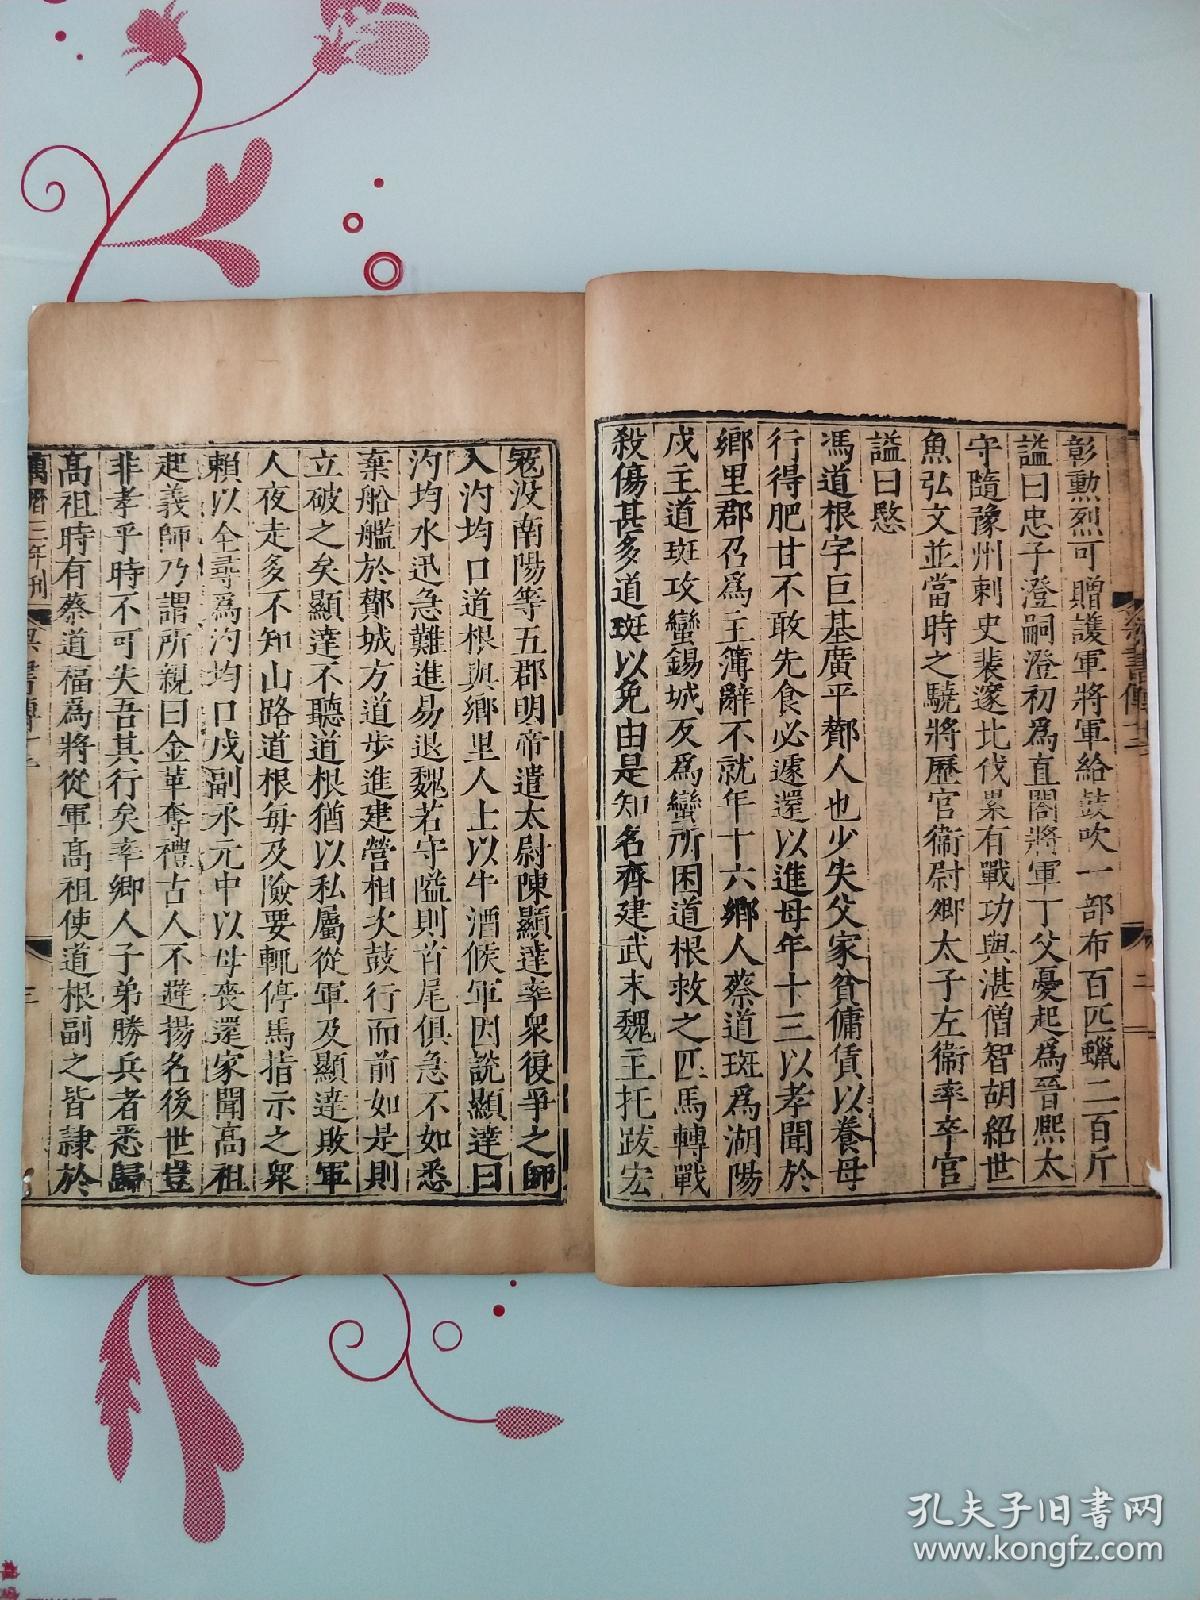 彰勲烈可贈護軍將軍給鼓吹一部布百匹蠟二百斤
謚曰忠子澄嗣澄初爲直閤將軍丁父憂起爲晉熙太
守隨豫州刺史裴邃北伐累有戰功與湛僧智胡紹世
魚弘文並當時之驍將歷官衞尉卿太子左衞率卒官
謚曰愍
馮道根字巨基廣平酇人也少失父家貧傭賃以養母
行得肥甘不敢先食必遽還以進母年十三以孝聞於
鄉里郡召爲主簿辭不就年十六鄉人蔡道斑爲湖陽
戍主道斑攻蠻錫城反爲蠻所困道根救之匹馬轉戰
殺傷甚多道斑以免由是知名齊建武末魏主托跋宏
寇沒南陽等五郡明帝遣太尉陳顯達率衆復爭之師
入汮均口道根與鄉里人士以牛酒候軍因說顯達曰
汮均水迅急難進易退魏若守隘則首尾俱急不如悉
棄船艦於酇城方道步進建營相次鼓行而前如是則
立破之矣顯達不聽道根猶以私屬從軍及顯達敗軍
人夜走多不知山路道根每及險要輒停馬指示之衆
賴以全尋爲汮均口戍副永元中以母喪還家聞高祖
起義師乃謂所親曰金革奪禮古人不避揚名後世豈
非孝乎時不可失吾其行矣率鄉人子弟勝兵者悉歸
高祖時有蔡道福爲將從軍高祖使道根副之皆隷於
萬曆三年刊 梁書傳十二 三
孔夫子旧书网
www.kongfz.com